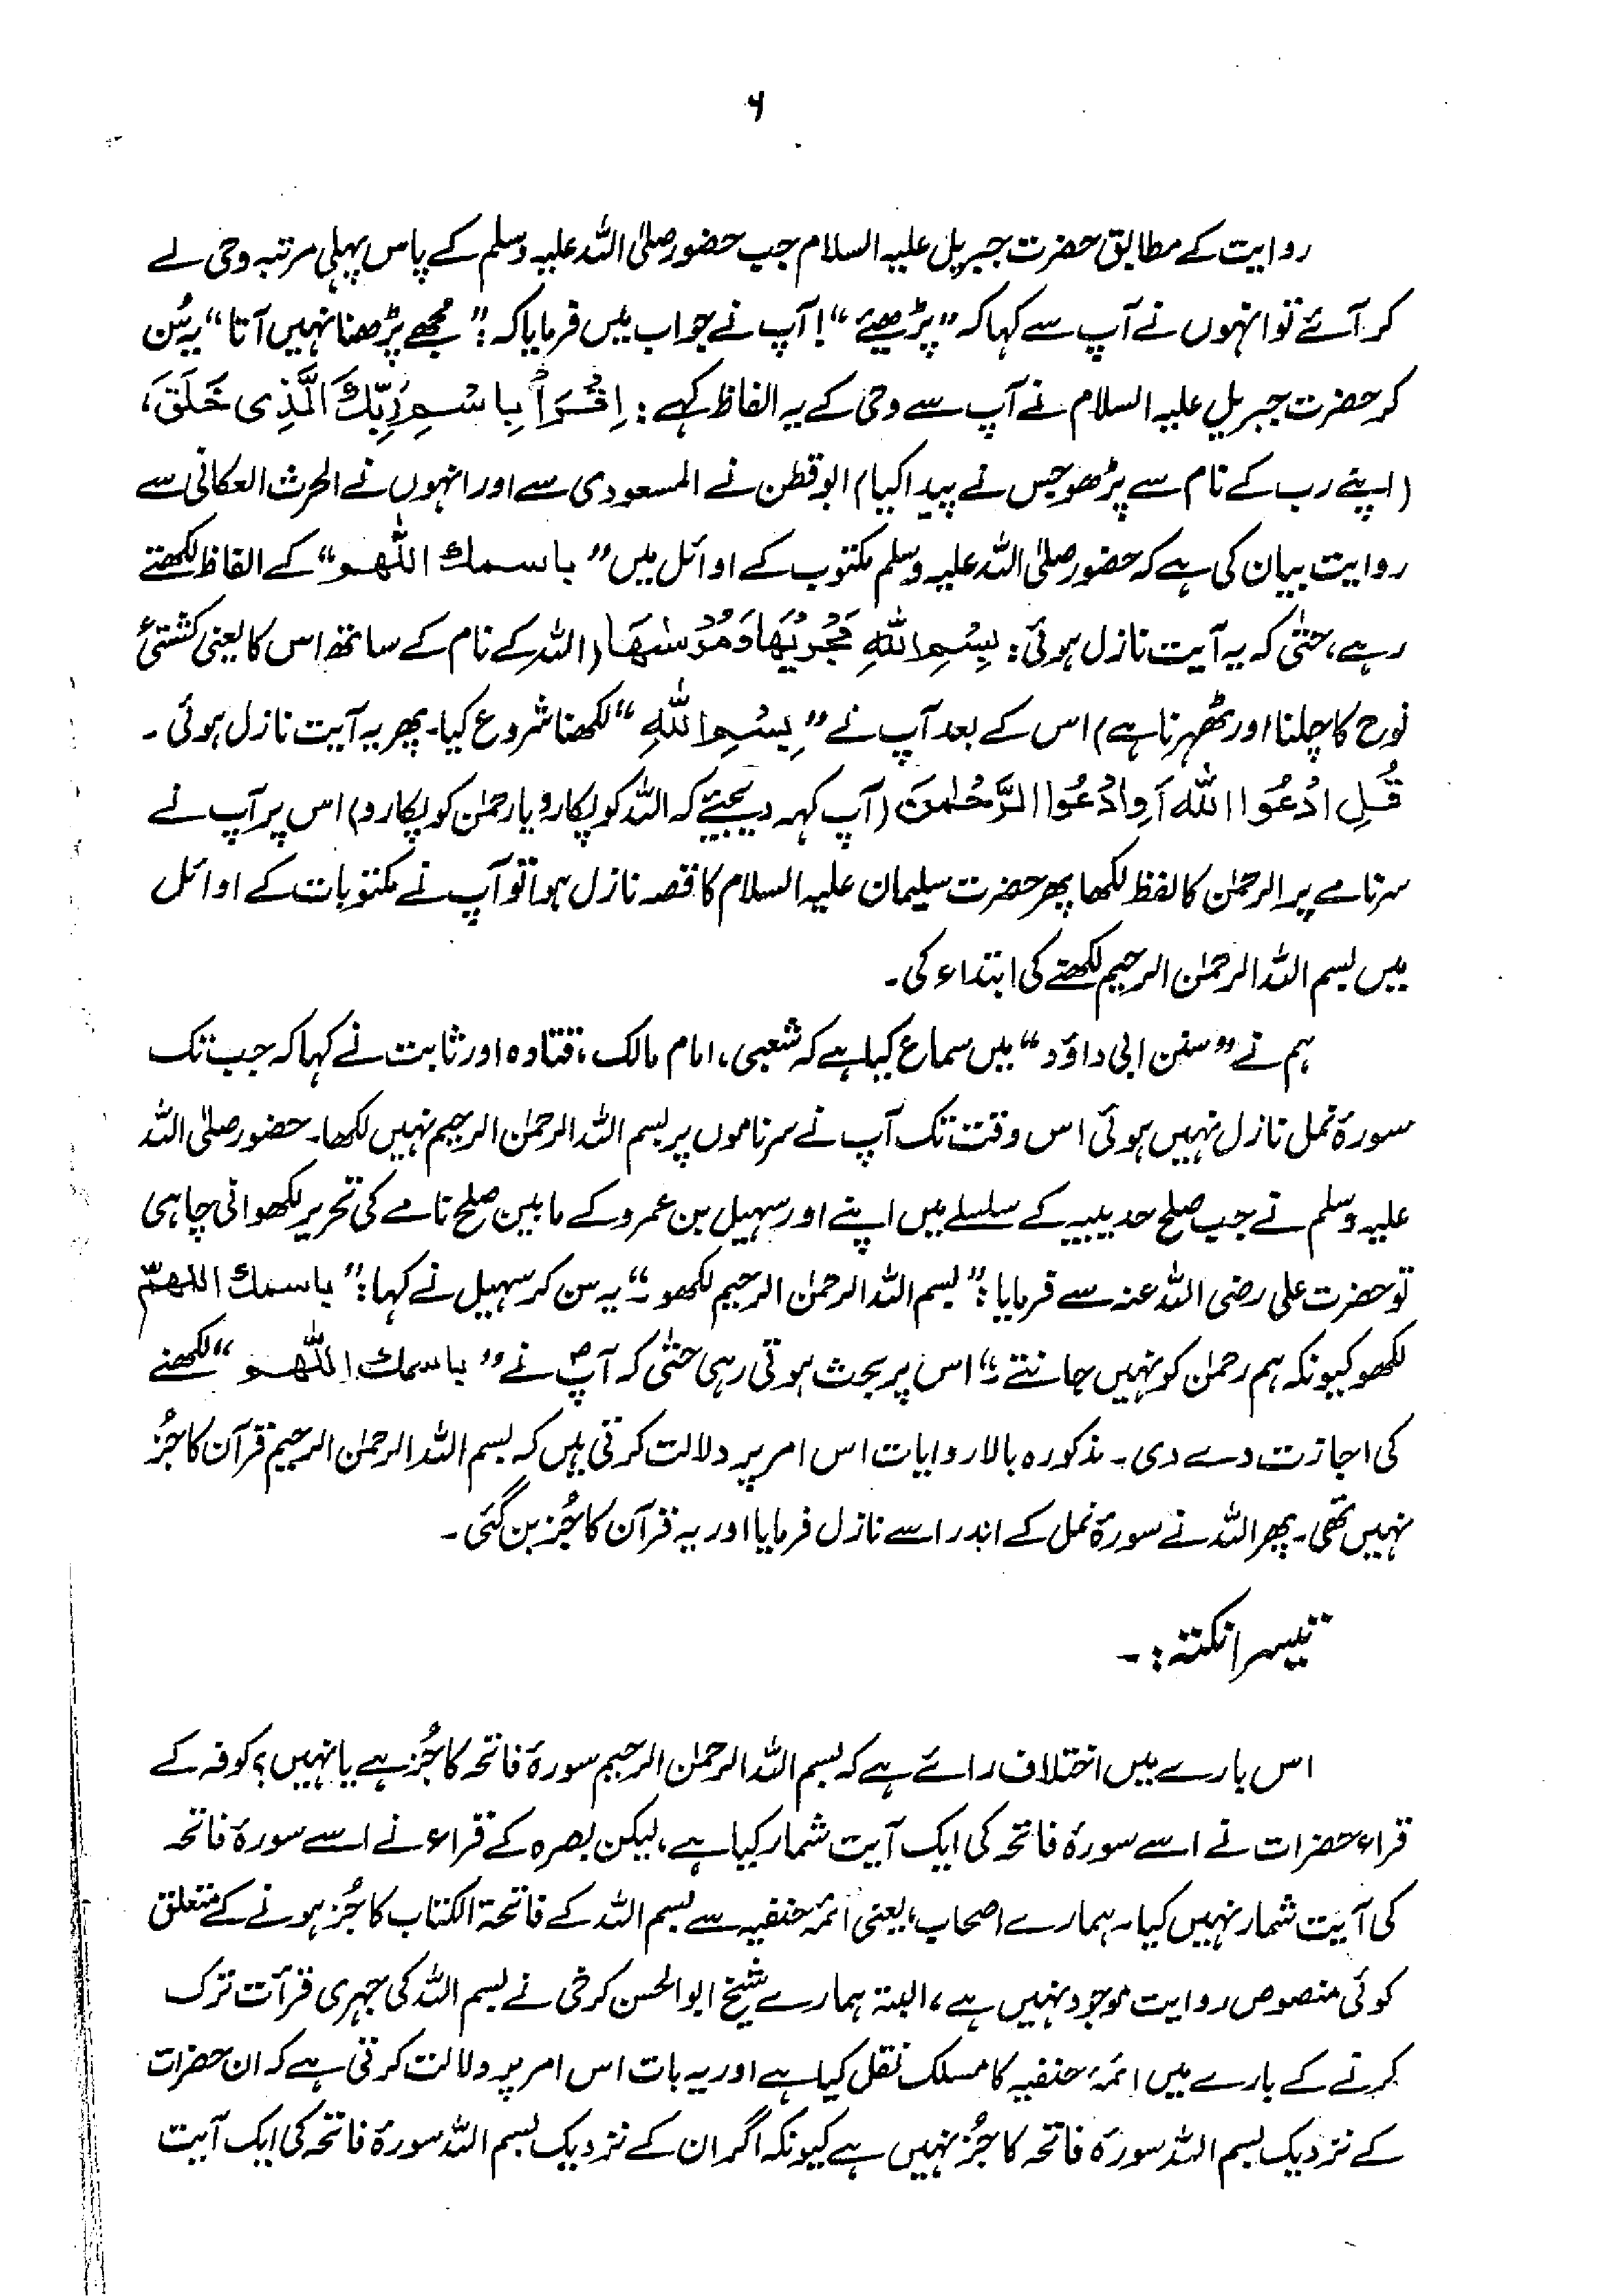 ۶
روایت کے مطابق حضرت جبریل علیہ السلام جب حضور صلی اللہ علیہ وسلم کے پاس پہلی مرتبہ وحی لے
کر آئے تو انہوں نے آپ سے کہا کہ ”پڑھیئے“! آپ نے جواب میں فرمایا کہ: ”مجھے پڑھنا نہیں آتا“ یہ سُن
کر حضرت جبریل علیہ السلام نے آپ سے وحی کے یہ الفاظ کہے: اِقْرَأْ بِاسْمِ رَبِّكَ الَّذِی خَلَقَ،
(اپنے رب کے نام سے پڑھو جس نے پیدا کیا) ابو قطن نے المسعودی سے اور انہوں نے الحرث العکانی سے
روایت بیان کی ہے کہ حضور صلی اللہ علیہ وسلم مکتوب کے اوائل میں ”باسمك اللّٰهم“ کے الفاظ لکھتے
رہے، حتیٰ کہ یہ آیت نازل ہوئی: بِسْمِ اللّٰهِ مَجْرٖىهَا وَمُرْسٰىهَا (اللہ کے نام کے ساتھ اس کا یعنی کشتیٔ
نوح کا چلنا اور ٹھہرنا ہے) اس کے بعد آپ نے ”بِسْمِ اللّٰهِ“ لکھنا شروع کیا۔ پھر یہ آیت نازل ہوئی۔
قُلِ ادْعُوا اللّٰهَ اَوِ ادْعُوا الرَّحْمٰنَ (آپ کہہ دیجیئے کہ اللہ کو پکارو یا رحمٰن کو پکارو) اس پر آپ نے
سرنامے پر الرحمٰن کا لفظ لکھا پھر حضرت سلیمان علیہ السلام کا قصہ نازل ہوا تو آپ نے مکتوبات کے اوائل
میں بسم اللہ الرحمٰن الرحیم لکھنے کی ابتداء کی۔
ہم نے ”سنن ابی داؤد“ میں سماع کیا ہے کہ شعبی، امام مالک، قتادہ اور ثابت نے کہا کہ جب تک
سورۂ نمل نازل نہیں ہوئی اس وقت تک آپ نے سرناموں پر بسم اللہ الرحمٰن الرحیم نہیں لکھا۔ حضور صلی اللہ
علیہ وسلم نے جب صلح حدیبیہ کے سلسلے میں اپنے اور سہیل بن عمرو کے مابین صلح نامے کی تحریر لکھوانی چاہی
تو حضرت علی رضی اللہ عنہ سے فرمایا: ”بسم اللہ الرحمٰن الرحیم لکھو۔“ یہ سن کر سہیل نے کہا: ”باسمك اللهمّ
لکھو کیونکہ ہم رحمٰن کو نہیں جانتے۔“ اس پر بحث ہوتی رہی حتیٰ کہ آپؐ نے ”باسمك اللّٰهم“ لکھنے
کی اجازت دے دی۔ مذکورہ بالا روایات اس امر پر دلالت کرتی ہیں کہ بسم اللہ الرحمٰن الرحیم قرآن کا جُز
نہیں تھی۔ پھر اللہ نے سورۂ نمل کے اندر اسے نازل فرمایا اور یہ قرآن کا جُز بن گئی۔
تیسرا نکتہ:۔
اس بارے میں اختلاف رائے ہے کہ بسم اللہ الرحمٰن الرحیم سورۂ فاتحہ کا جُز ہے یا نہیں؟ کوفہ کے
قراء حضرات نے اسے سورۂ فاتحہ کی ایک آیت شمار کیا ہے، لیکن بصرہ کے قراء نے اسے سورۂ فاتحہ
کی آیت شمار نہیں کیا۔ ہمارے اصحاب، یعنی ائمۂ حنفیہ سے بسم اللہ کے فاتحۃ الکتاب کا جُز ہونے کے متعلق
کوئی منصوص روایت موجود نہیں ہے، البتہ ہمارے شیخ ابوالحسن کرخی نے بسم اللہ کی جہری قرأت ترک
کرنے کے بارے میں ائمۂ حنفیہ کا مسلک نقل کیا ہے اور یہ بات اس امر پر دلالت کرتی ہے کہ ان حضرات
کے نزدیک بسم اللہ سورۂ فاتحہ کا جُز نہیں ہے کیونکہ اگر ان کے نزدیک بسم اللہ سورۂ فاتحہ کی ایک آیت